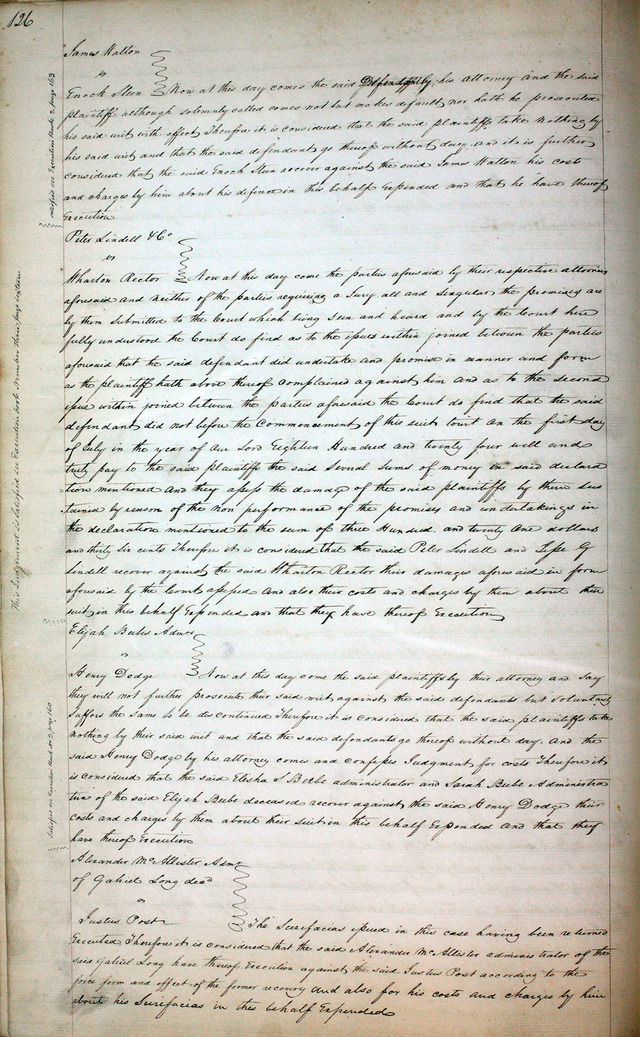 126
James Walton
vs
Enoch Steen Now at this day comes the said Defendant by his attorney and the said
plaintiff although solemnly called comes not but makes default nor hath he prosecuted
his said writ with effect Therefore it is considered that the said plaintiff take nothing by
his said writ and that the said defendant go thereof without day. and it is further
considered that the said Enoch Steen recover against the said James Walton his costs
and charges by him about his defence in this behalf Expended and that he have thereof
Execution
Peter Lindell & Co
vs
Wharton Rector Now at this day come the parties aforesaid by their respective attornies
aforesaid and neither of the parties requiring a Jury all and singular the premises are
by them submitted to the Court which being seen and heard and by the Court here
fully understood the Court do find as to the issues within joined between the parties
aforesaid that the said defendant did undertake and promise in manner and form
as the plaintiff hath above thereof complained against him and as to the second
issue within joined between the parties aforesaid the Court do find that the said
defendant did not before the commencement of this suit towit on the first day
of July in the year of our Lord Eighteen Hundred and twenty four well and
truly pay to the said plaintiffs the said several sums of money in said declara
tion mentioned and they assess the damage of the said plaintiffs by them sus
tained by reason of the non performance of the promises and undertakings in
the declaration mentioned to the sum of three Hundred and twenty one dollars
and thirty six cents Therefore it is considered that the said Peter Lindell and Jesse G
Lindell recover against the said Wharton Rector their damages aforesaid in form
aforesaid by the Court assessed and also their costs and charges by them about their
suit in this behalf Expended and that they have thereof Execution
Elijah Bebee Admrs
vs
Henry Dodge Now at this day come the said plaintiffs by their attorney and say
they will not further prosecute their said writ against the said defendants but voluntarily
suffers the same to be discontinued Therefore it is considered that the said plaintiffs take
nothing by their said wit and that the said defendants go thereof without day. And the
said Henry Dodge by his attorney comes and confesses Judgment for costs Therefore it
is considered that the said Elisha S Beebe administrator and Sarah Beebe Administra
trix of the said Elijah Beebe deceased recover against the said Henry Dodge their
costs and charges by them about their suit in this behalf Expended and that they
have thereof Execution
Alexander McAllister Admr
of Gabriel Long decd
vs
Justus Post The Scirifacias issued in this case having been returned
Executed Therefore it is considered that the said Alexander McAllister administrator of the
said Gabriel Long have thereof Execution against the said Justus Post according to the
force form and effect of the former recovery and also for his costs and charges by him
about his Scirifacias in this behalf Expended
satisfied see Execution Book 2 page 163
This Judgment is satisfied see Execution book Number three page sixteen
Satisfied see Execution Book No 2 page 160